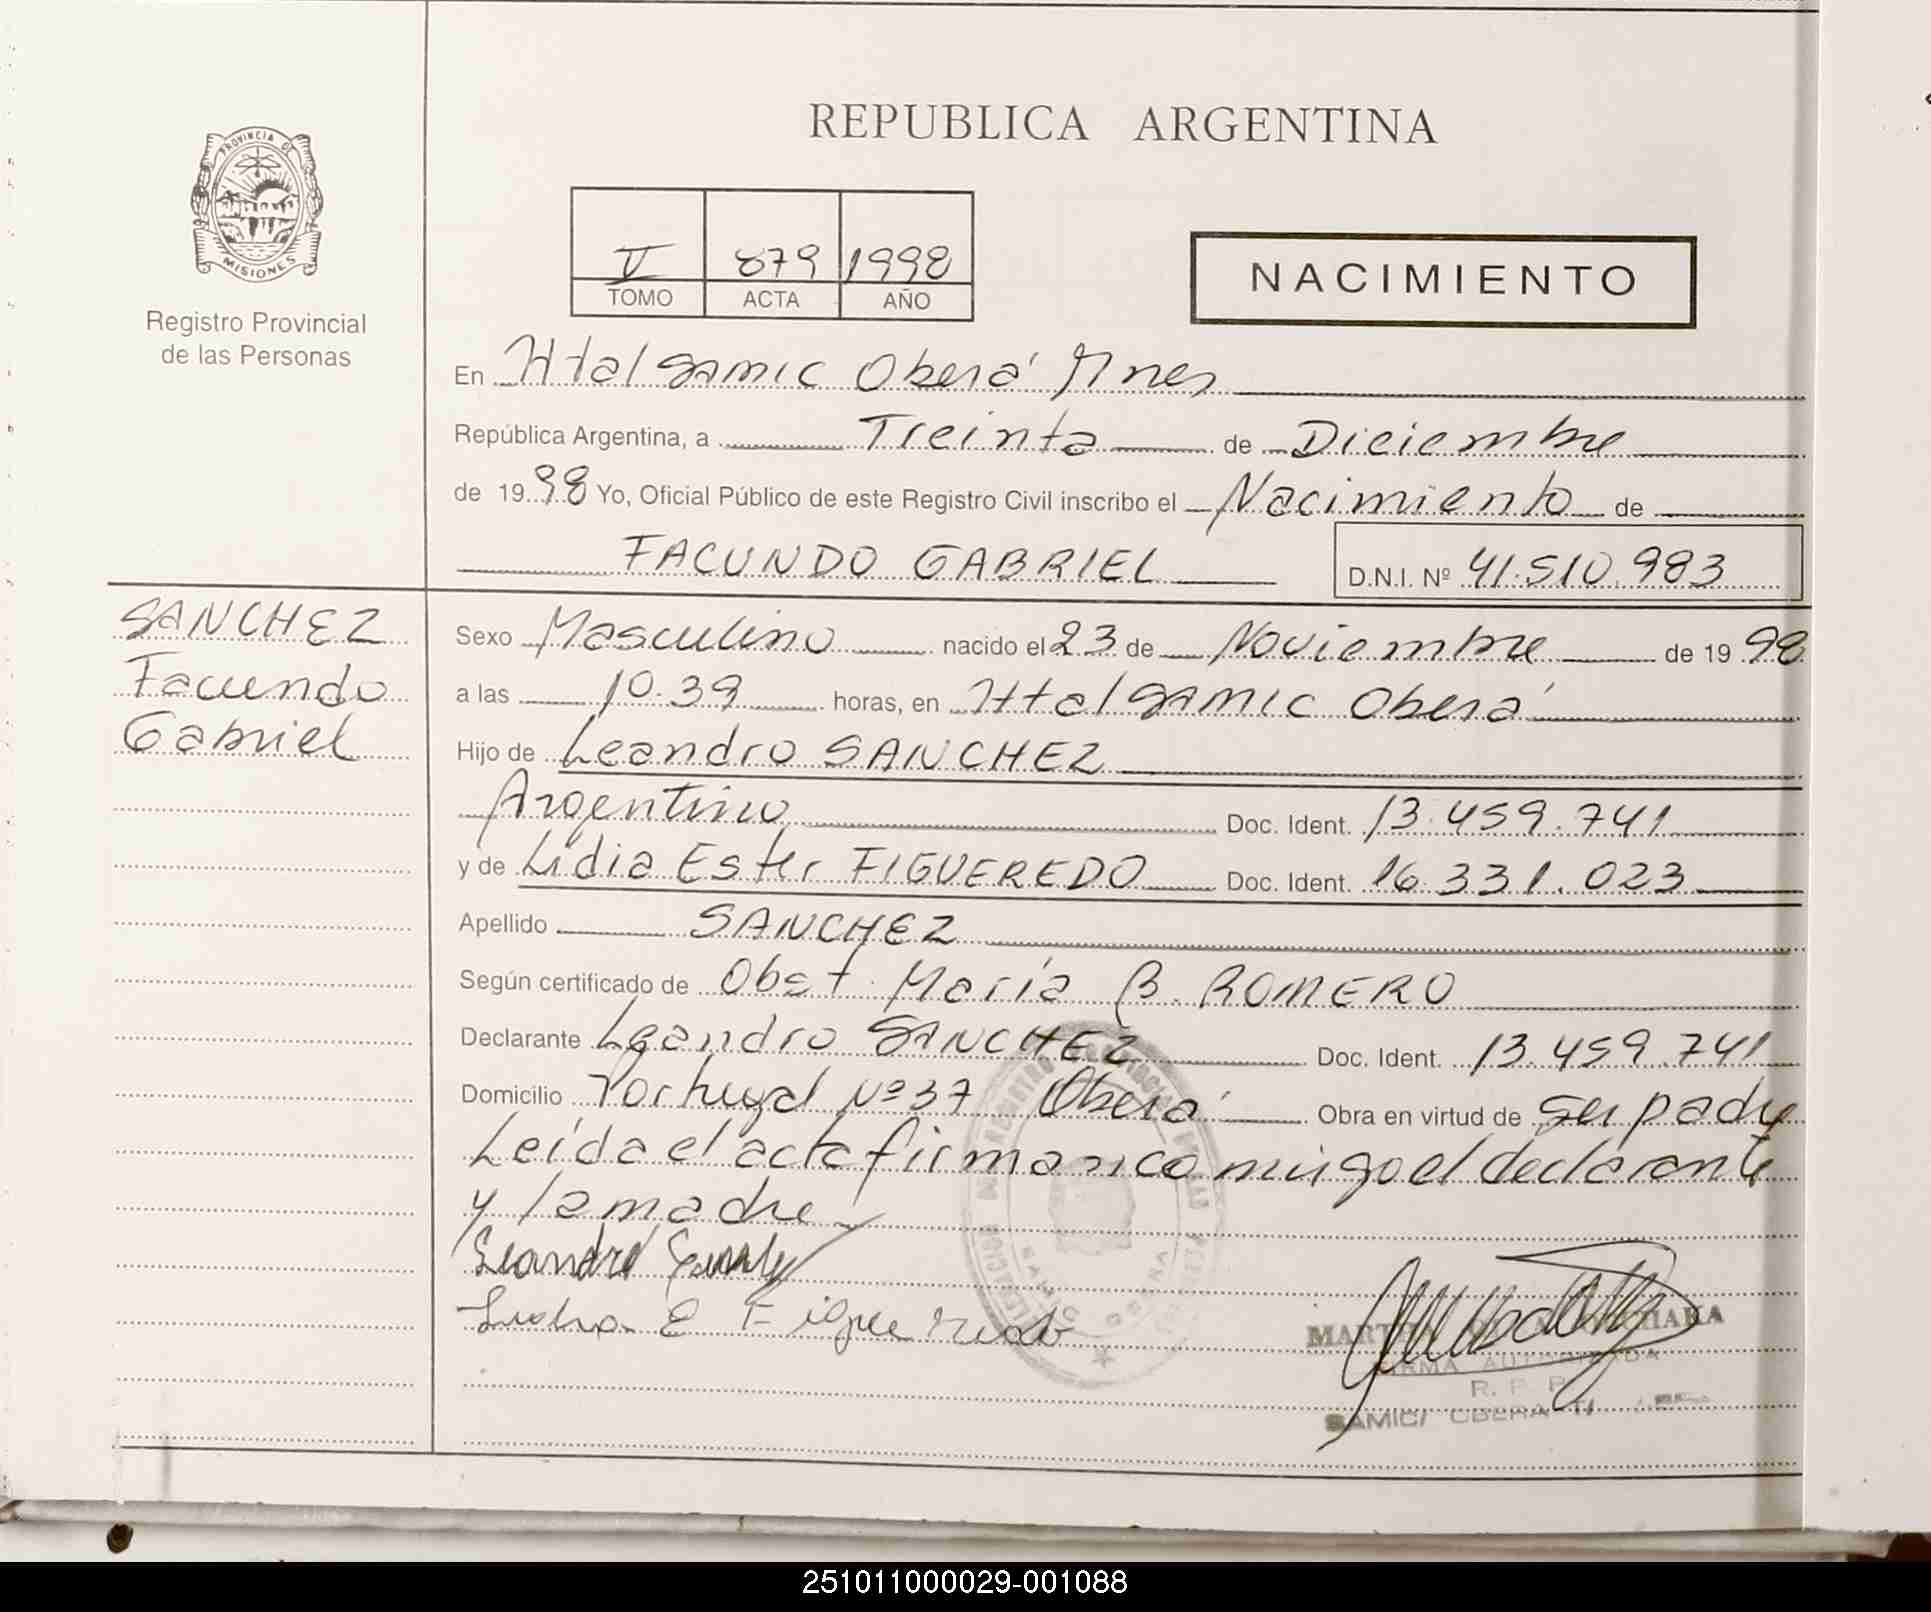 REPUBLICA ARGENTINA
PROVINCIA DE
MISIONES
Registro Provincial
de las Personas
V 879 1998
TOMO ACTA AÑO
NACIMIENTO
En Htal Samic Oberá Mnes
República Argentina, a Treinta de Diciembre
de 1998 Yo, Oficial Público de este Registro Civil inscribo el Nacimiento de
FACUNDO GABRIEL D.N.I. Nº 41.510.983
SANCHEZ
Facundo
Gabriel
Sexo Masculino nacido el 23 de Noviembre de 1998
a las 10.39 horas, en Htal SAMIC Oberá
Hijo de Leandro SANCHEZ
Argentino Doc. Ident. 13.459.741
y de Lidia Ester FIGUEREDO Doc. Ident. 16.331.023
Apellido SANCHEZ
Según certificado de Obst. María B. ROMERO
Declarante Leandro SANCHEZ Doc. Ident. 13.459.741
Domicilio Portugal Nº 37 Oberá Obra en virtud de ser padre
Leída el acta firman conmigo el declarante
y la madre
Leandro Sanchez
Lidia E Figueredo
FIRMA AUTORIZADA
R. P. P.
SAMIC/ OBERA
251011000029-001088